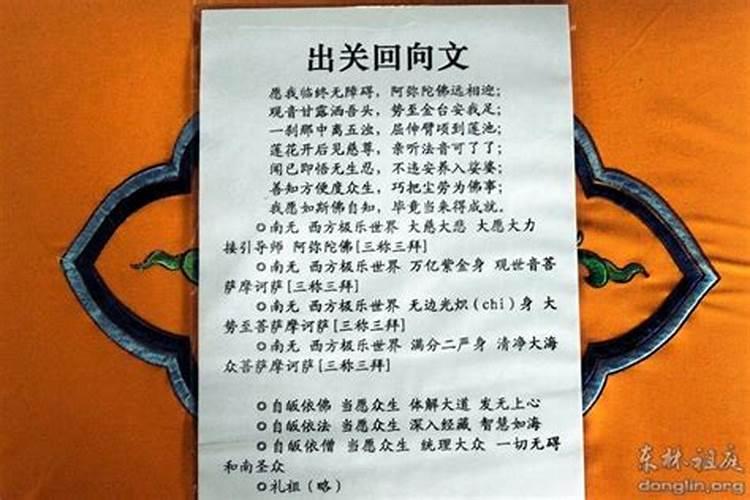 出关回向文
愿我临终无障碍，阿弥陀佛远相迎；
观音甘露洒吾头，势至金台安我足；
一刹那中离五浊，屈伸臂顷到莲池；
莲花开后见慈尊，亲听法音可了了；
闻已即悟无生忍，不违安养入娑婆；
善知方便度众生，巧把尘劳为佛事；
我愿如斯佛自知，毕竟当来得成就。
◎南无 西方极乐世界 大慈大悲 大愿大力
接引导师 阿弥陀佛[三称三拜]
◎南无 西方极乐世界 万亿紫金身 观世音菩
萨摩诃萨[三称三拜]
◎南无 西方极乐世界 无边光炽(chi)身 大
势至菩萨摩诃萨[三称三拜]
◎南无 西方极乐世界 满分二严身 清净大海
众菩萨摩诃萨[三称三拜]
◎自皈依佛 当愿众生 体解大道 发无上心
◎自皈依法 当愿众生 深入经藏 智慧如海
◎自皈依僧 当愿众生 统理大众 一切无碍
和南圣众
◎礼祖(略)
东林祖庭
donglin.org